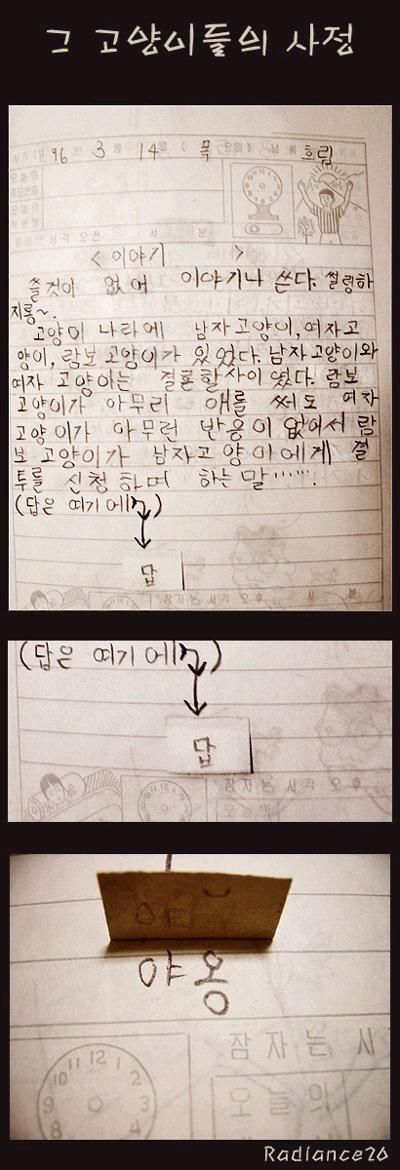 그 고양이들의 사정
96 3 14 목 흐림
<이야기>
쓸것이 없어 이야기나 쓴다. 썰렁하
지롱~.
고양이 나라에 남자고양이, 여자고
양이, 람보 고양이가 있었다. 남자고양이와
여자 고양이는 결혼할사이였다. 람보
고양이가 아무리 애를 써도 여자
고양이가 아무런 반응이 없어서 람
보고양이가 남자고양이에게 결
투를 신청하며 하는말……
(답은 여기에)
답
잠자는시각 오후 시 분
(답은 여기에)
답
잠자는시각 오후
오늘의
야옹
11 12 1
10 2
9 3
8 4
잠자는 시
오늘의
Radiance20